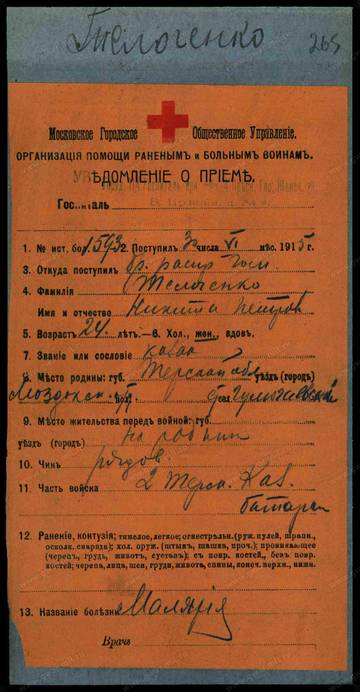 265
Московское Городское Общественное Управленіе.
ОРГАНИЗАЦІЯ ПОМОЩИ РАНЕНЫМЪ И БОЛЬНЫМЪ ВОИНАМЪ.
УВѢДОМЛЕНІЕ О ПРІЕМѢ.
Госпиталь
1. № ист. бол. 15932. Поступилъ 3 числа VI мѣс. 1915 г.
3. Откуда поступилъ
4. Фамилія
Имя и отчество Никита Петров
5. Возрастъ 24 лѣтъ.—6. Хол., жен., вдов.
7. Званіе или сословіе казак
8. Мѣсто родины: губ. Терской обл уѣздъ (городъ)
9. Мѣсто жительства передъ войной: губ.
уѣздъ (городъ) на родинѣ
10. Чинъ рядов.
11. Часть войска 2 Терск. Каз.
батареи
12. Раненіе, контузія: тяжелое, легкое; огнестрѣльн. (руж. пулей, шрапн., осколк. снаряда); хол. оруж. (штык, шашка, проч.); проникающее (черепъ, грудь, животъ, суставъ); съ повр. костей, безъ повр. костей; черепа, лица, шеи, груди, живота, спины, конеч. верхн., нижн.
13. Названіе болѣзни Малярія
Врачъ